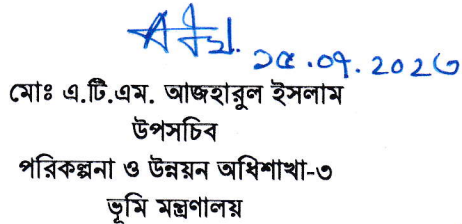 ১৫.০৭.২০২৩
মোঃ এ.টি.এম. আজহারুল ইসলাম
উপসচিব
পরিকল্পনা ও উন্নয়ন অধিশাখা-৩
ভূমি মন্ত্রণালয়